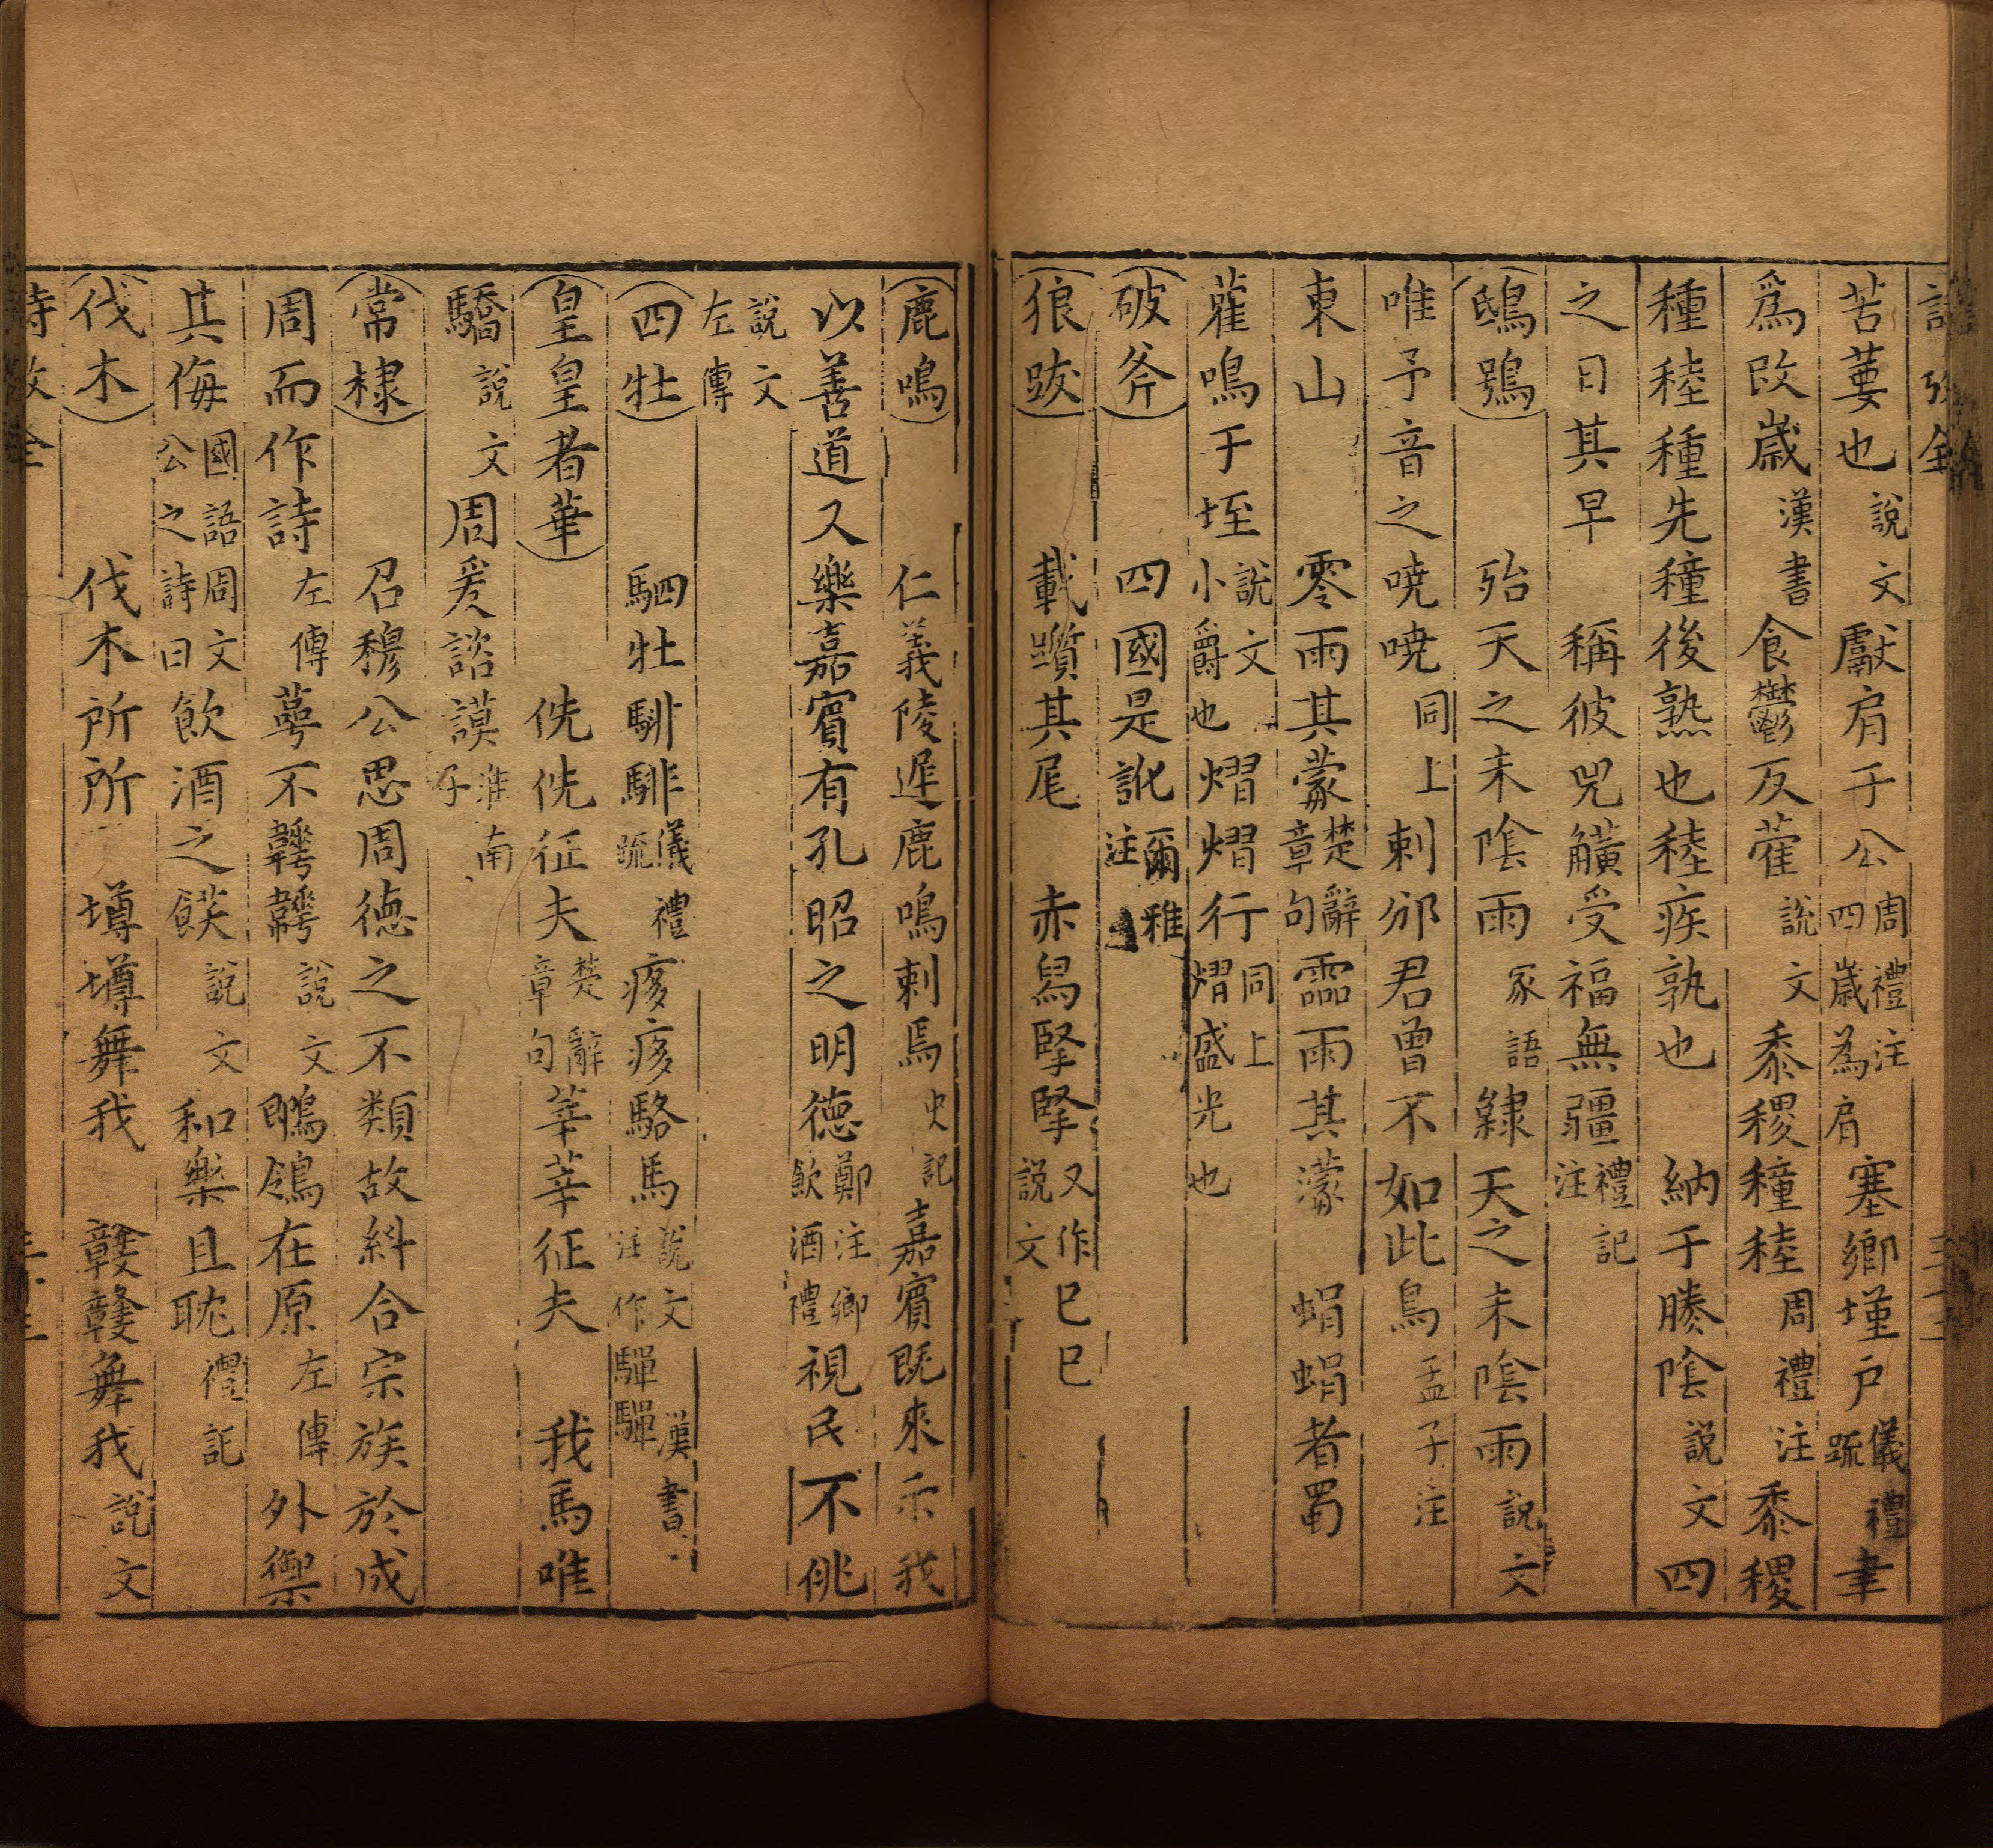 苦葽也說文獻肩于公周禮注四歲為肩塞鄉墐戶儀禮疏聿
爲改歲漢書食鬱反蒮說文黍稷穜稑周禮注黍稷
種稑種先穜後熟也稑疾孰也 納于賸陰說文四
之日其早 稱彼兕觵受福無疆禮記注
鴟鴞 殆天之未陰雨家語隸天之未陰雨說文
唯予音之嘵嘵同上刺邠君曾不如此鳥孟子注
東山 零雨其蒙楚辭章句霝雨其濛 蜎蜎者蜀
雚鳴于垤說文小爵也熠熠行同上熠盛光也
破斧 四國是訛爾雅注
狼跋 載躓其尾 赤舄掔掔又作說文己己
鹿鳴 仁義陵遲鹿鳴刺焉史記嘉賓既來示我
以善道又樂嘉賓有孔昭之明德鄭注鄉飲酒禮視民不佻
說文左傳
四牡 駟牡騑騑儀禮疏痑痑駱馬說文注作驒驒漢書
皇皇者華 侁侁征夫楚辭章句莘莘征夫 我馬唯
驕說文周爰諮謨淮南子
常棣 召穆公思周德之不類故糾合宗族於成
周而作詩左傳萼不韡韡說文鴡鴒在原左傳外禦
其侮國語周文公之詩曰飲酒之䬳說文和樂且耽禮記
伐木 伐木所所 墫墫舞我 竷竷舞我說文